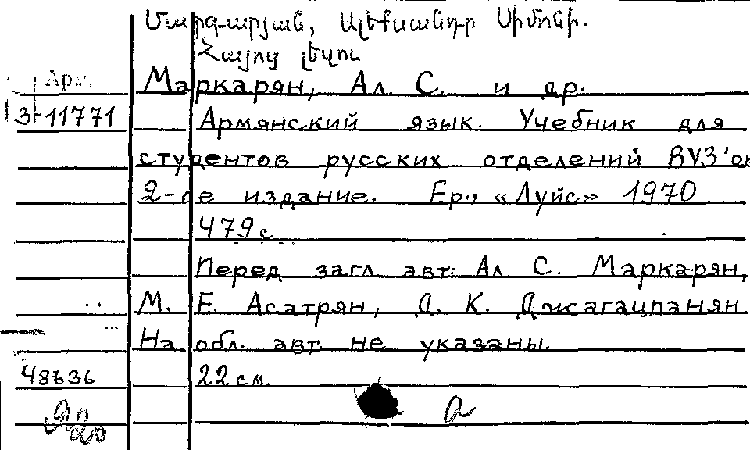 Մարգարյան, Ալեքսանդր Սիմոնի.
Հայոց լեզու
Арм.
Маркарян, Ал. С. и др.
3-11771
Армянский язык. Учебник для
студентов русских отделений ВУЗ'ов
2-ое издание. Ер., «Луйс» 1970
479 с.
Перед загл. авт: Ал. С. Маркарян,
М. Е. Асатрян, Д. К. Джагацпанян
На обл. авт. не указаны.
22 см.